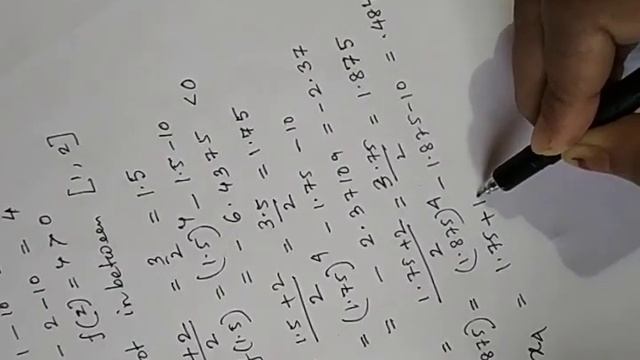 1 - 10 = 4
- 2 - 10 = 
f(2) = 4 > 0
ot inbetween [1, 2]
+2/2 = 3/2 = 1.5
f(1.5) = (1.5)^4 - 1.5 - 10
= - 6.4375 < 0
1.5 + 2/2 = 3.5/2 = 1.75
= (1.75)^4 - 1.75 - 10
= - 2.37109 = - 2.37
1.75 + 2/2 = 3.75/2 = 1.875
875) = (1.875)^4 - 1.875 - 10 = .484
x4 = 1.75 + 1